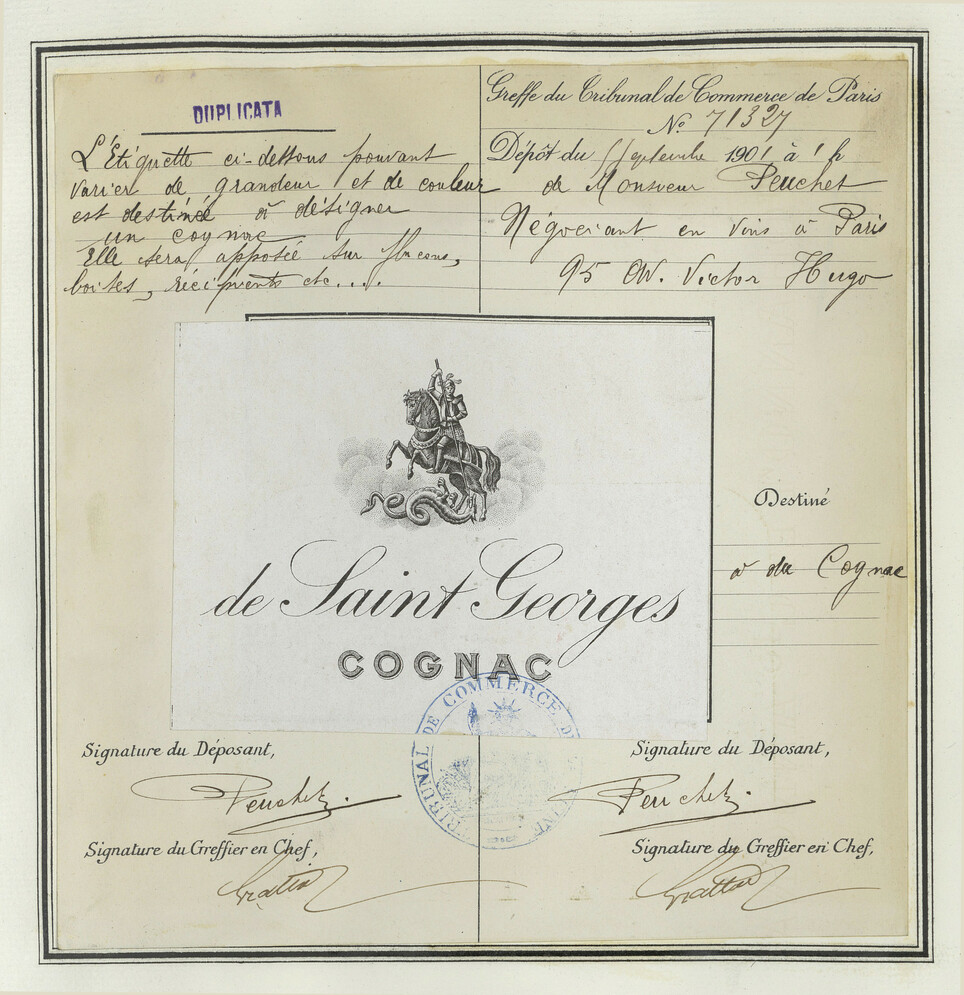 DUPLICATA
L'Etiquette ci-dessous pouvant
varier de grandeur et de couleur
est destinée à désigner
un cognac
Elle sera apposée sur flacons,
boites, récipients etc....
Greffe du Tribunal de Commerce de Paris
No 71327
Dépôt du Septembre 1901 à 1 h
de Monsieur Peuchet
Négociant en vins à Paris
95 AV. Victor Hugo
de Saint Georges
COGNAC
Destiné
à du Cognac
TRIBUNAL DE COMMERCE DE SEINE
Signature du Déposant,
Peuchet
Signature du Greffier en Chef,
Signature du Déposant,
Peuchet
Signature du Greffier en Chef,